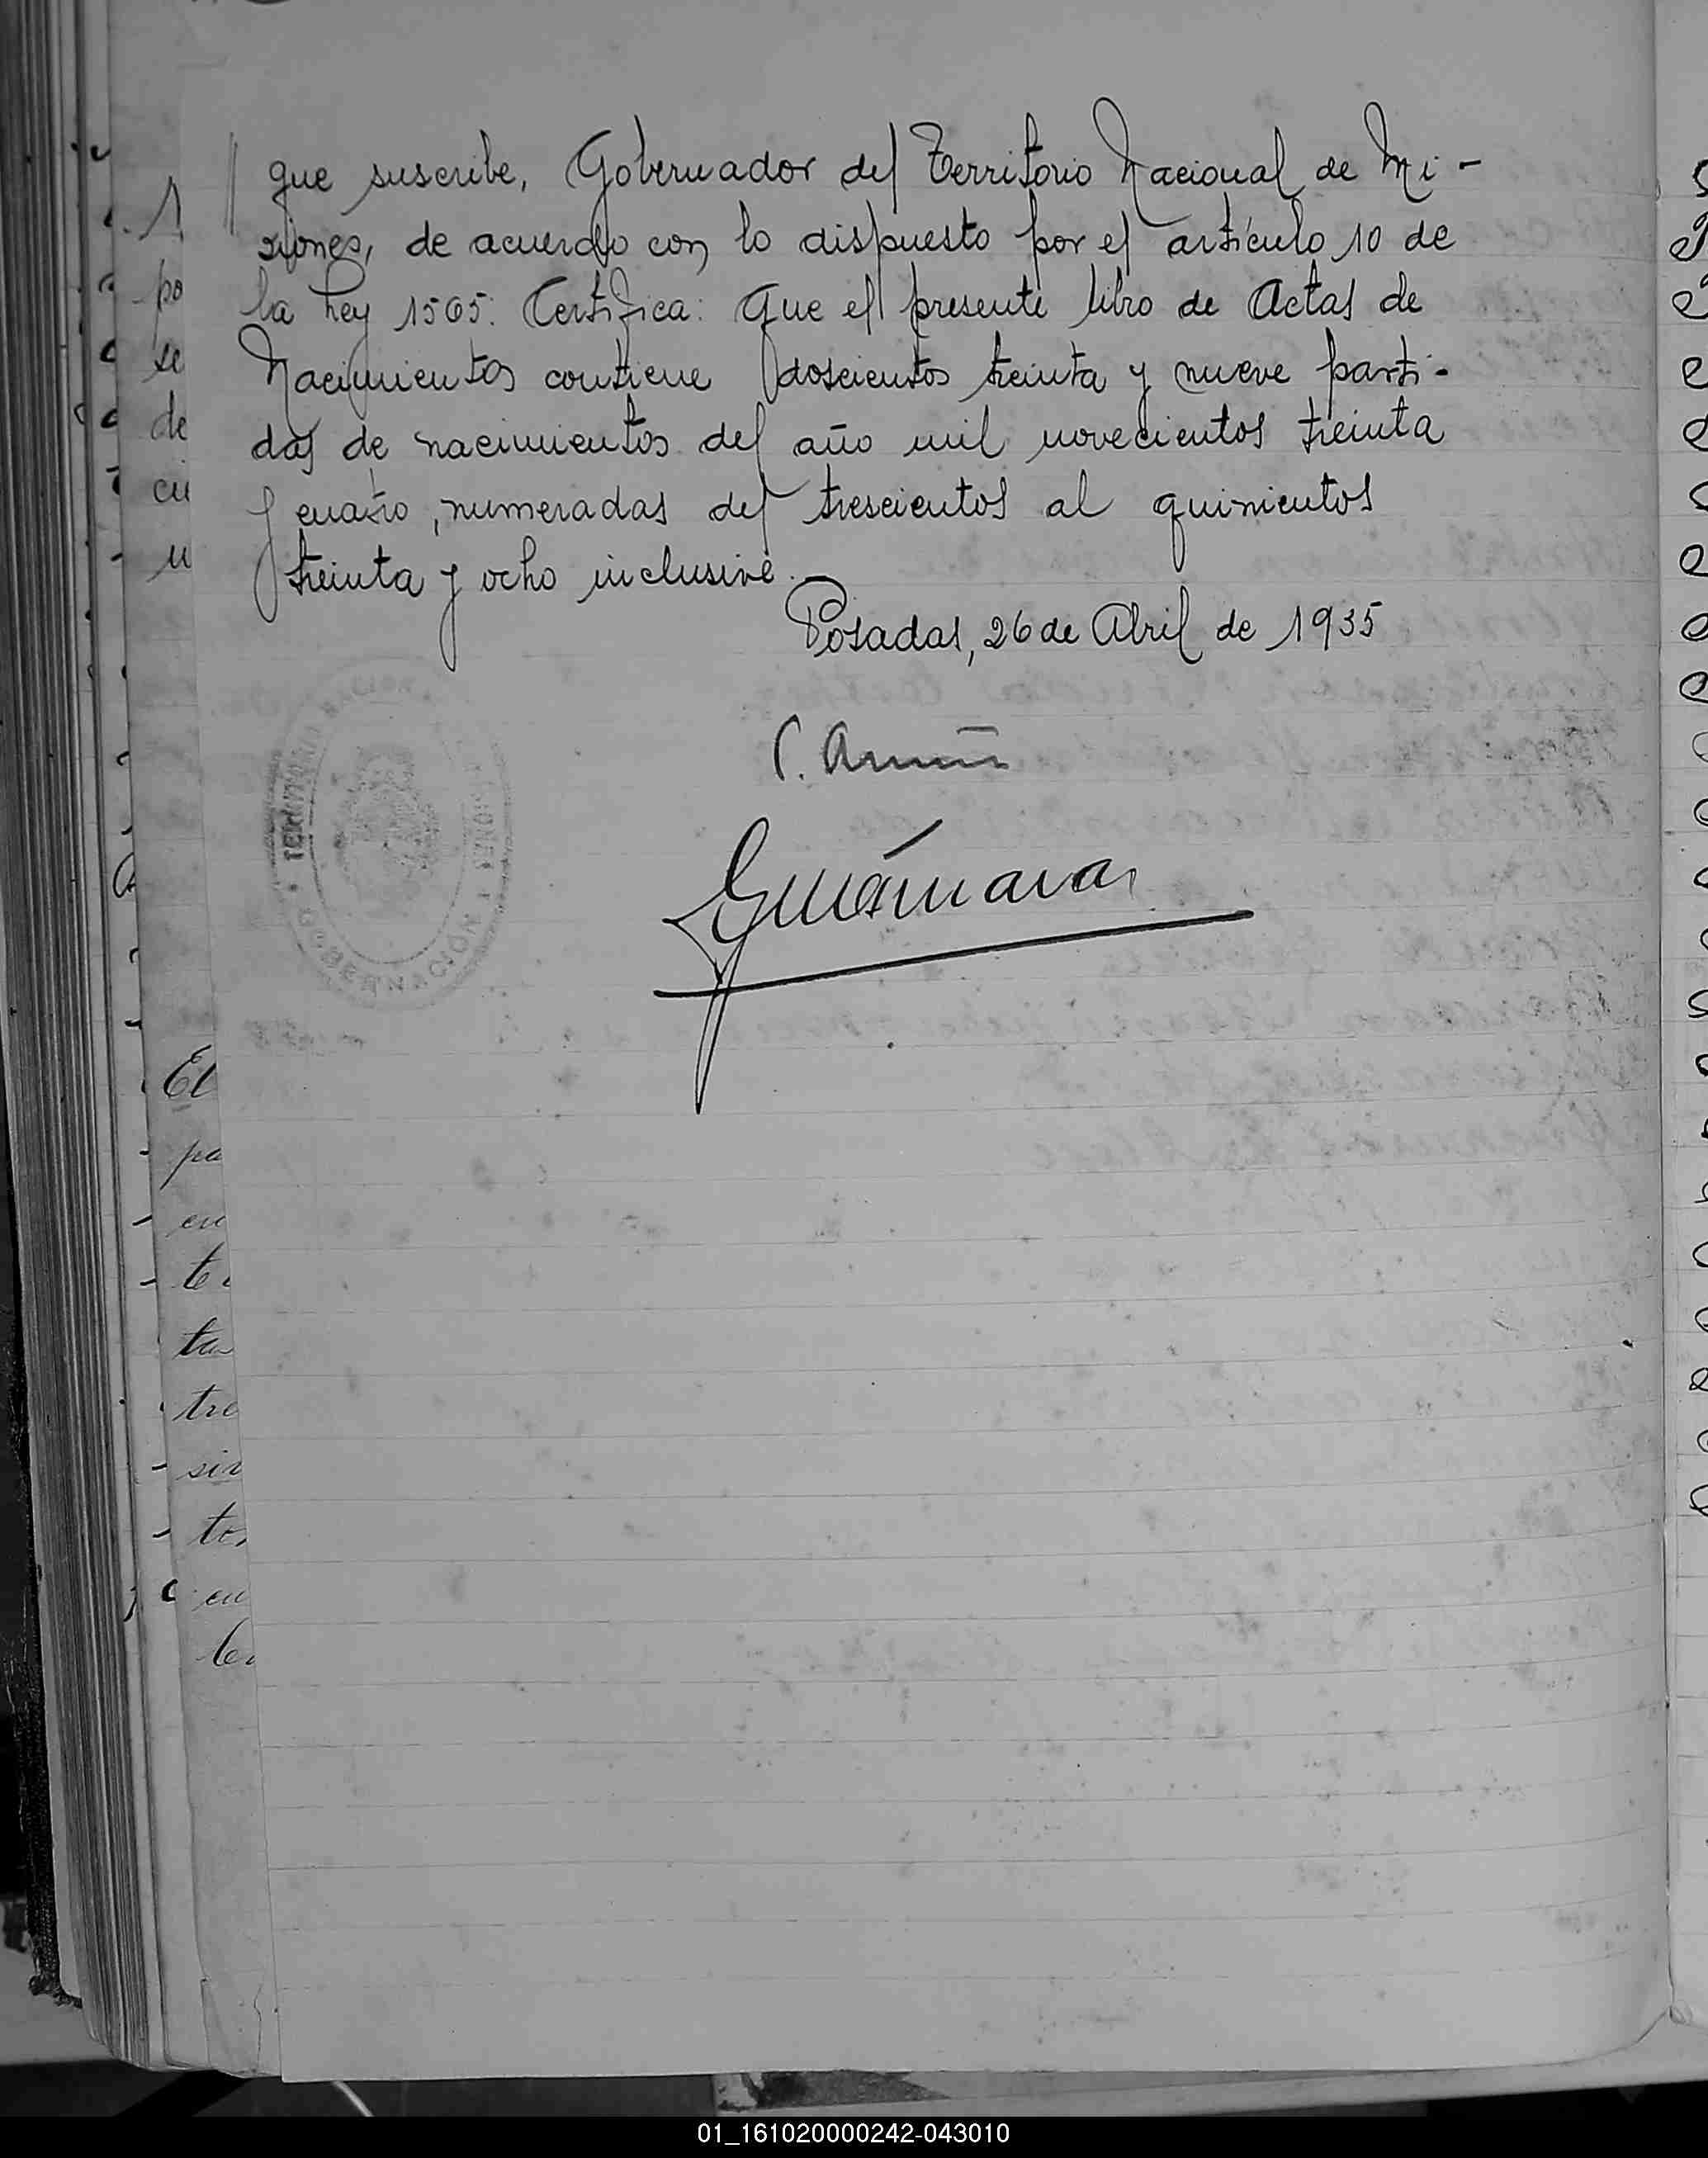 // que suscribe, Gobernador del Territorio Nacional de Mi-
siones, de acuerdo con lo dispuesto por el artículo 10 de
la Ley 1565: Certifica: Que el presente libro de Actas de
Nacimientos contiene doscientos treinta y nueve parti-
das de nacimientos del año mil novecientos treinta
y cuatro, numeradas del trescientos al quinientos
treinta y ocho inclusive.-
Posadas, 26 de Abril de 1935
TERRITORIO NACION
GOBERNACIÓN
po
se
de
cu
El
pa
en
te
ta
tre
sir
to
en
01_161020000242-043010